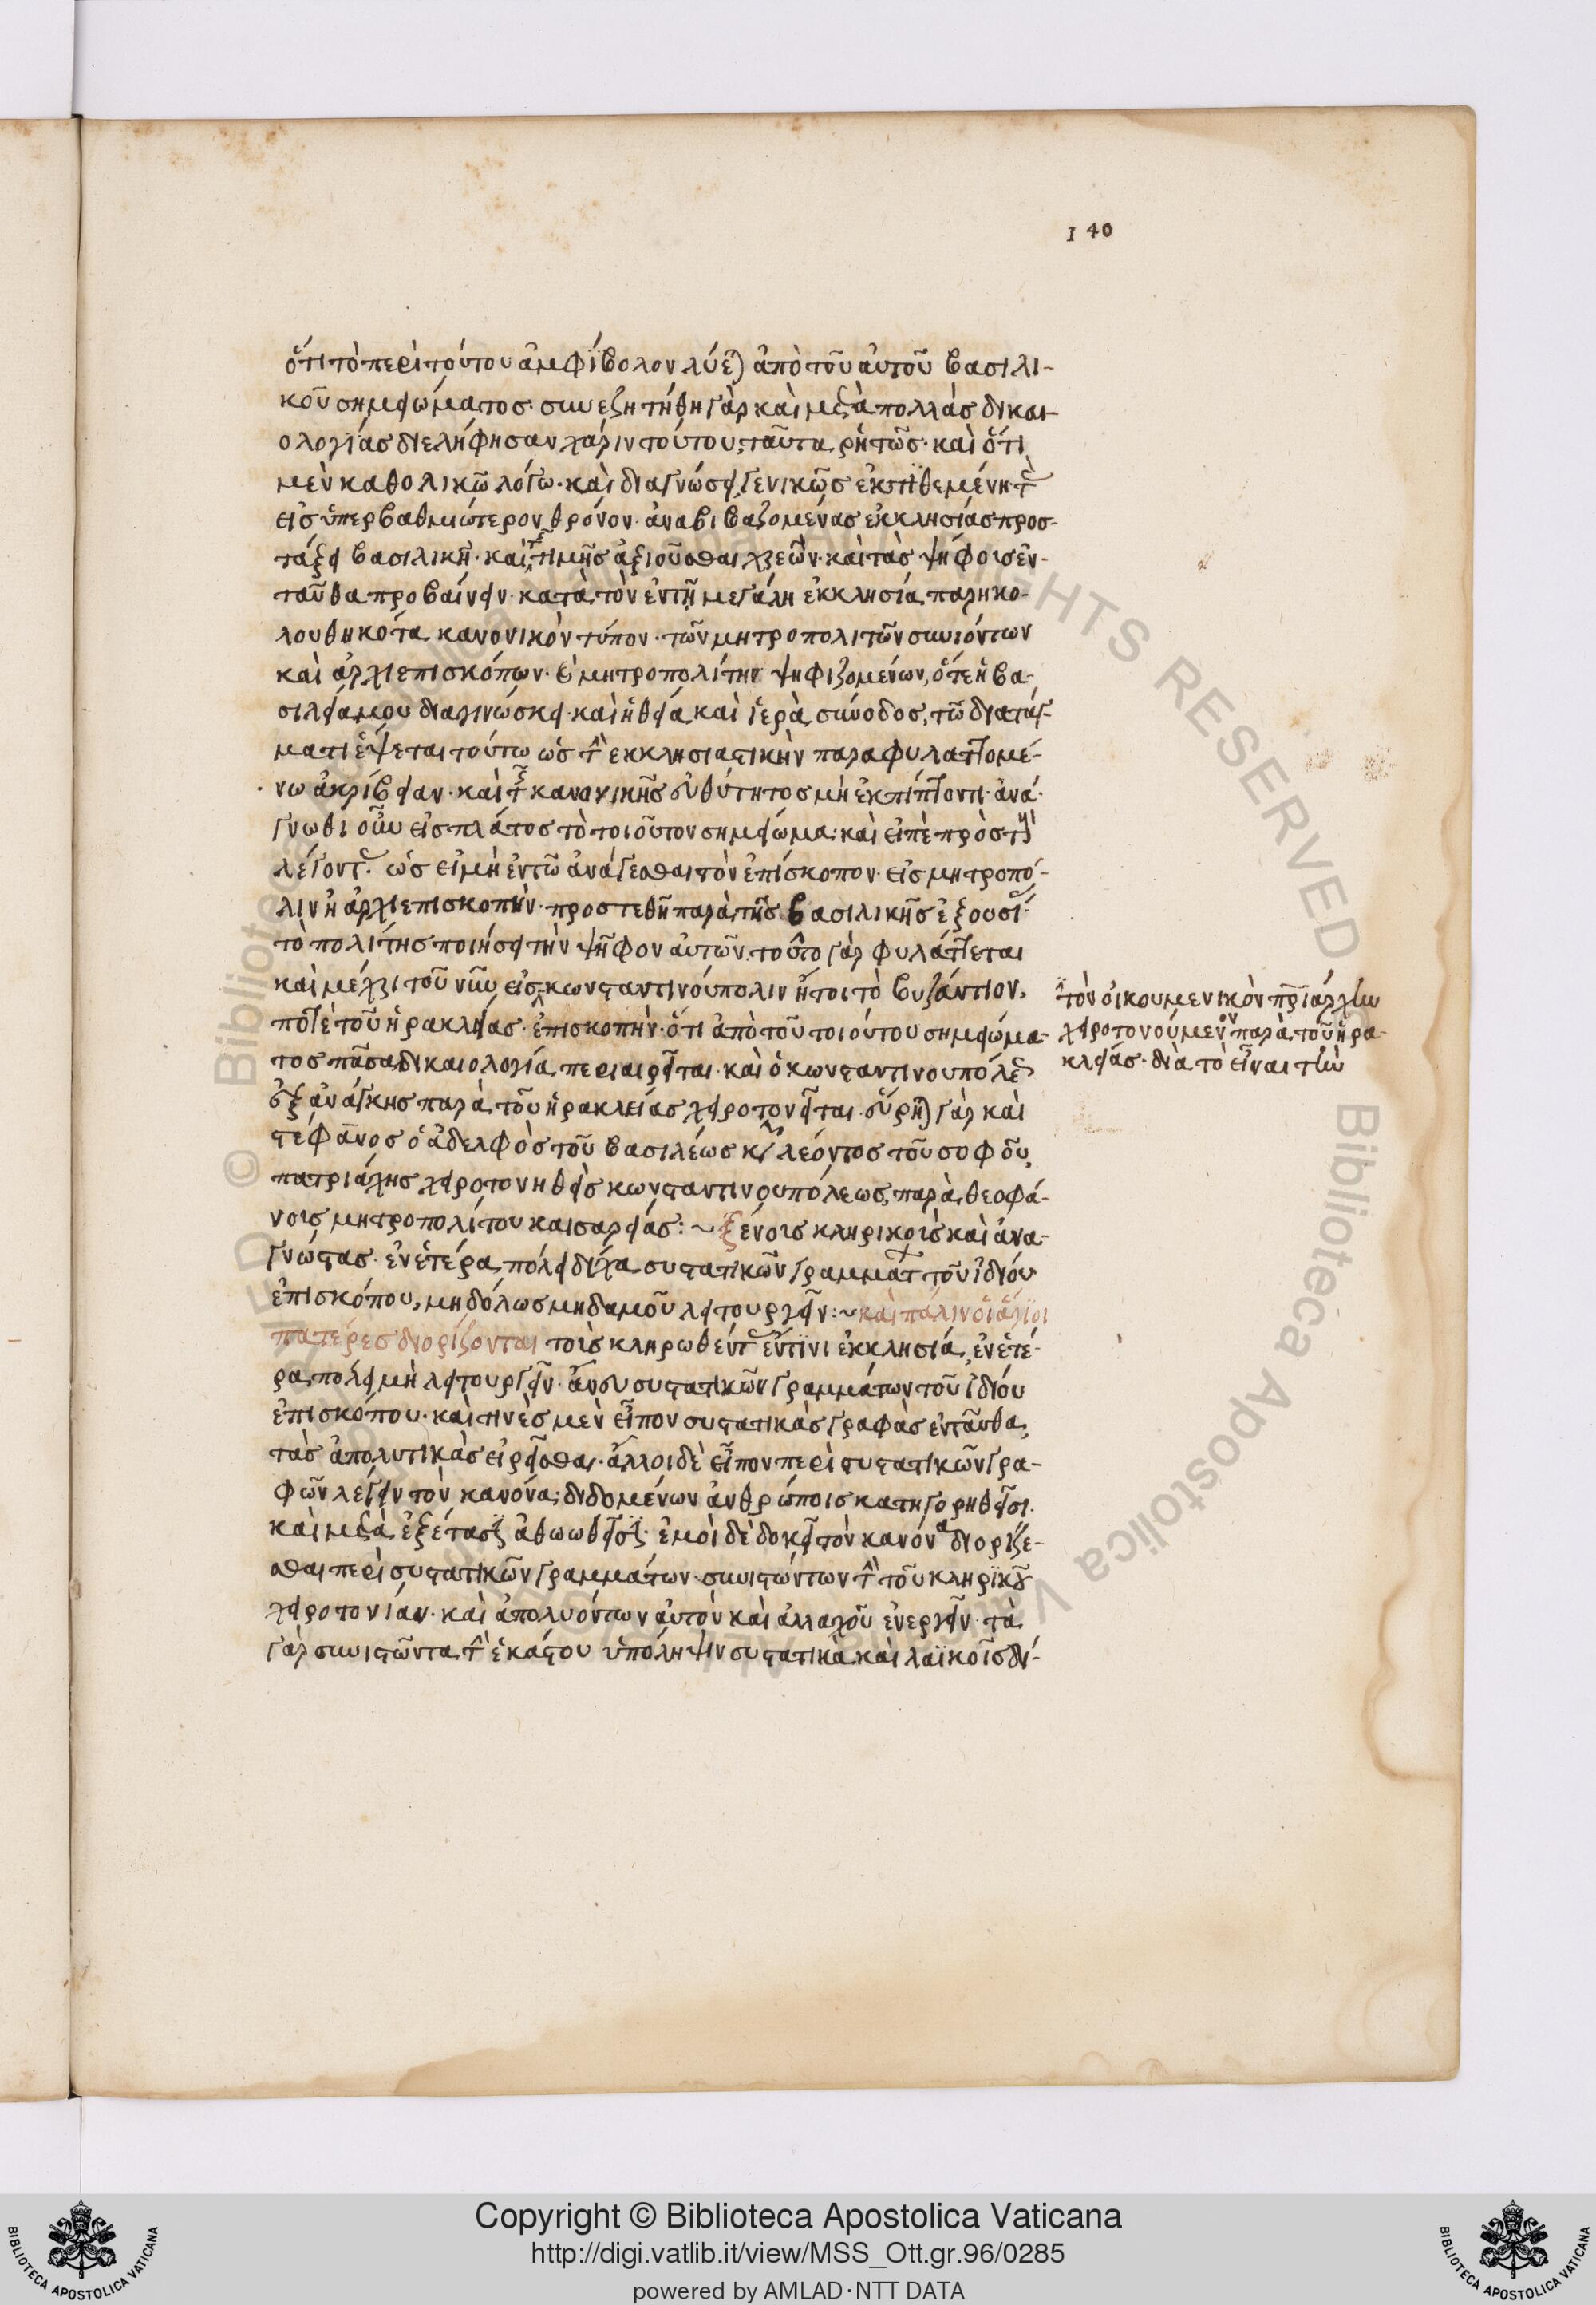 1 40
ὅτι τὸ περὶ τούτου ἀμφίβολον λύε) ἀπὸ τοῦ αὐτοῦ βασιλι-
κοῦ σημειώματος· συνεζητήθη γὰρ καὶ μετὰ πολλὰς δικαι-
ολογίας διελήφησαν χάριν τούτου, ταῦτα ῥητῶς· καὶ ὅτι
μὲν καθολικῶ λόγω· καὶ διαγνώσει γενικῶς ἐκτιθεμένη· τ
εἰς ὑπερβαθμιώτερον θρόνον ἀναβιβαζομένας ἐκκλησίας προσ-
τάξει βασιλικῆ· καὶ τιμῆς ἀξιοῦσθαι χρεών· καὶ τὰς ψήφους ἐν-
ταῦθα προβαίνειν· κατὰ τὸν ἐν τῆ μεγάλη ἐκκλησία παρηκο-
λουθηκότα κανονικὸν τύπον· τῶν μητροπολιτῶν συνιόντων
καὶ ἀρχιεπισκόπων· μητροπολίτην ψηφιζομένων, ὅτε ἡ βα-
σιλεία μου διαγινώσκει· καὶ ἡ θεία καὶ ἱερὰ σύνοδος, τῶ διατάγ-
ματι ἕψεται τούτω ὡς τὴν ἐκκλησιαστικὴν παραφυλαττομέ-
νω ἀκρίβειαν· καὶ τῆς κανονικῆς εὐθύτητος μὴ ἐκπίπτοντι· ἀνά-
γνωθι οὖν εἰς πλάτος τὸ τοιοῦτον σημείωμα· καὶ εἰπὲ πρὸς τὴν
λέγοντ. ὡς εἰ μὴ ἐν τῶ ἀνάγεσθαι τὸν ἐπίσκοπον εἰς μητροπό-
λιν ἢ ἀρχιεπισκοπὴν· προστεθῆ παρὰ τῆς βασιλικῆς ἐξουσί
τὸ πολίτης ποιήσει τὴν ψῆφον αὐτῶν. τοῦτο γὰρ φυλάττεται
καὶ μέχρι τοῦ νῦν εἰς κωνσταντινούπολιν ἤτοι τὸ βυζάντιον,
ποτὲ τοῦ ἡρακλείας ἐπισκοπήν· ὅτι ἀπὸ τοῦ τοιούτου σημειώμα-
τος πᾶσα δικαιολογία περιαιρεῖται· καὶ ὁ κωνσταντινουπόλε
ἐξ ἀνάγκης παρὰ τοῦ ἡρακλείας χειροτονεῖται· εὕρη) γὰρ καὶ
στέφανος ὁ ἀδελφὸς τοῦ βασιλέως κυ λέοντος τοῦ σοφοῦ,
πατριάρχης χειροτονηθεὶς κωνσταντινουπόλεως, παρὰ θεοφά-
νους μητροπολίτου καισαρείας: ~ ξένους κληρικοὺς καὶ ἀνα-
γνώστας· ἐν ἑτέρα πόλει δίχα συστατικῶν γραμμάτ τοῦ ἰδίου
ἐπισκόπου, μηδ' ὅλως μηδαμοῦ λειτουργεῖν: ~ καὶ πάλιν οἱ ἅγιοι
πατέρες διορίζονται τοὺς κληρωθέντ ἔν τινι ἐκκλησία, ἐν ἑτέ-
ρα πόλει μὴ λειτουργεῖν· ἄνευ συστατικῶν γραμμάτων τοῦ ἰδίου
ἐπισκόπου· καὶ τινὲς μὲν εἶπον συστατικὰς γραφὰς ἐνταῦθα,
τὰς ἀπολυτικὰς εἰρῆσθαι· ἄλλοι δὲ εἶπον περὶ συστατικῶν γρα-
φῶν λέγειν τὸν κανόνα, διδομένων ἀνθρώποις κατηγορηθεῖσι.
καὶ μετὰ ἐξέτασιν ἀθωωθεῖσιν· ἐμοὶ δὲ δοκεῖ τὸν κανόνα διορίζε-
σθαι περὶ συστατικῶν γραμμάτων· συνιστώντων τὴν τοῦ κληρϊκοῦ
χειροτονίαν· καὶ ἀπολυόντων αὐτὸν καὶ ἀλλαχοῦ ἐνεργεῖν· τὰ
γὰρ συνιστῶντα τὴν ἑκάστου ὑπόληψιν συστατικὰ καὶ λαϊκοῖς δί-
τὸν οἰκουμενικὸν πριάρχην
χειροτονούμενον παρὰ τοῦ ἡρα-
κλείας· διὰ τὸ εἶναι τὴν
Copyright © Biblioteca Apostolica Vaticana
http://digi.vatlib.it/view/MSS_Ott.gr.96/0285
powered by AMLAD·NTT DATA
BIBLIOTECA APOSTOLICA VATICANA
BIBLIOTECA APOSTOLICA VATICANA